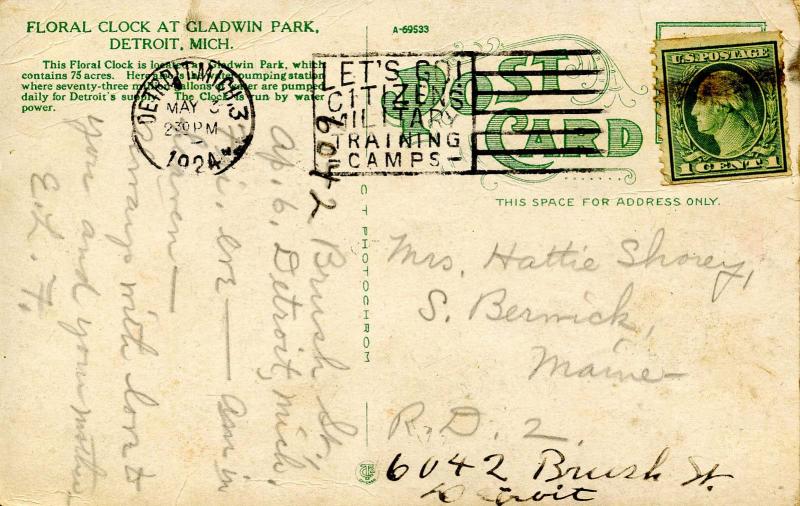 FLORAL CLOCK AT GLADWIN PARK,
DETROIT, MICH.
This Floral Clock is located at Gladwin Park, which
contains 75 acres. Here also is the water pumping station
where seventy-three million gallons of water are pumped
daily for Detroit's supply. The Clock is run by water
power.
A-69533
POST
CARD
THIS SPACE FOR ADDRESS ONLY.
U.S. POSTAGE
1 CENT 1
DETROIT, MICH.
MAY 3
230 PM
1924
LET'S GO!
CITIZENS
MILITARY
TRAINING
CAMPS
CT PHOTOCHROM
6042 Brush St.
Ap. 6. Detroit, Mich.
am in
haven —
Always with love to
you and your mother
E. L. F.
Mrs. Hattie Shorey,
S. Berwick,
Maine
R.D. 2.
6042 Brush St.
Detroit